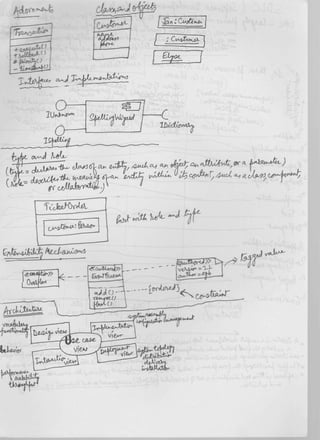 Adornments
classes and objects
Transaction
+ execute()
+ rollback()
# priority()
- timestamp()
Customer
name
address
phone
Jan : Customer
: Customer
Elyse
Interfaces and Implementations
IUnknown
Spellingwizard
IDictionary
ISpelling
type and Role
(type = declares the class of an entity, such as an object, an attribute, or a parameter)
(role = describes the meaning of an entity within its context, such as a class, component,
or collaboration.)
TicketOrder
customer: Person
Part with Role and type
Extensibility Mechanisms
<<exception>>
Overflow
<<authored>>
version = 1.2
author = egb
tagged value
EventQueue
add()
remove()
flush()
{ordered}
constraint
Architecture
vocabulary
functionality
Design view
Implementation
view
system assembly
configuration management
Use case
view
Behavior
Interaction
view
Deployment
view
system topology
distribution
delivery
installation
performance
scalability
throughput